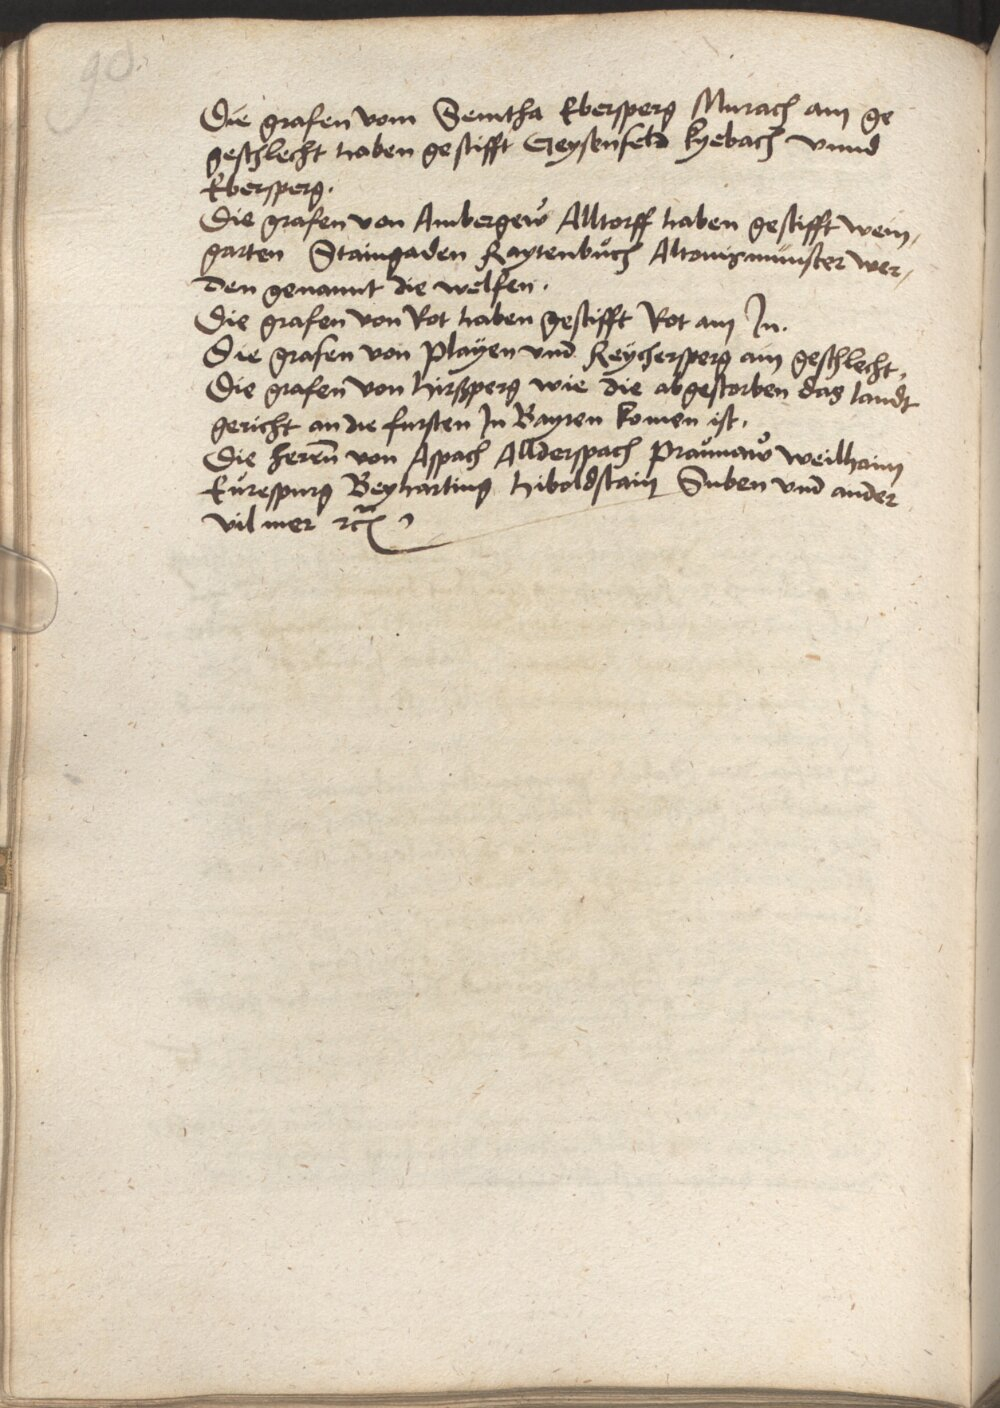 90.
Die grafen vom Semtha Ebersperg Murach ain ge
geschlecht haben gestifft Geysenfeld Kyebach vnnd
Ebersperg.
Die grafen von Ambergew Alltorff haben gestifft wein,
garten Staingaden Raytenbuch Altonismunster wer,
den genannt die welfen.
Die grafen von Rot haben gestifft Rot am In.
Die grafen von Playen vnd Reychersperg ain geschlecht.
Die grafen von hirsperg wie die abgestorben das landt
gericht an die fursten In Bayren komen ist.
Die herrn von Aspach Allderspach Praunaw weilhaim
Beyharting hiboldstain Suben vnd ander
vil mer rc